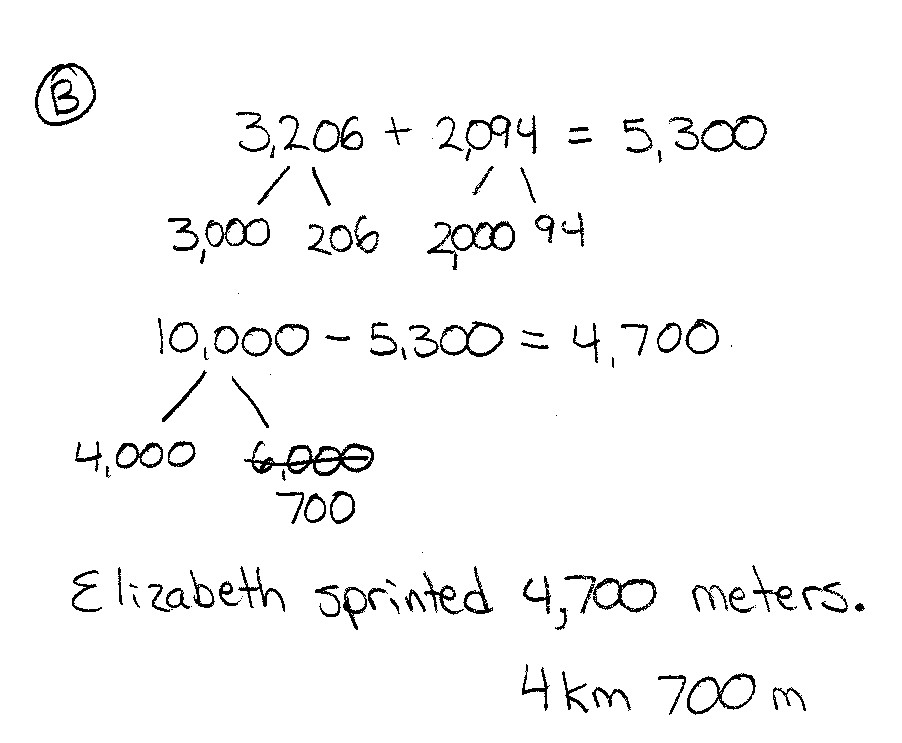 B
3,206 + 2,094 = 5,300
3,000 206 2,000 94
10,000 - 5,300 = 4,700
4,000 6,000
700
Elizabeth sprinted 4,700 meters.
4 km 700 m